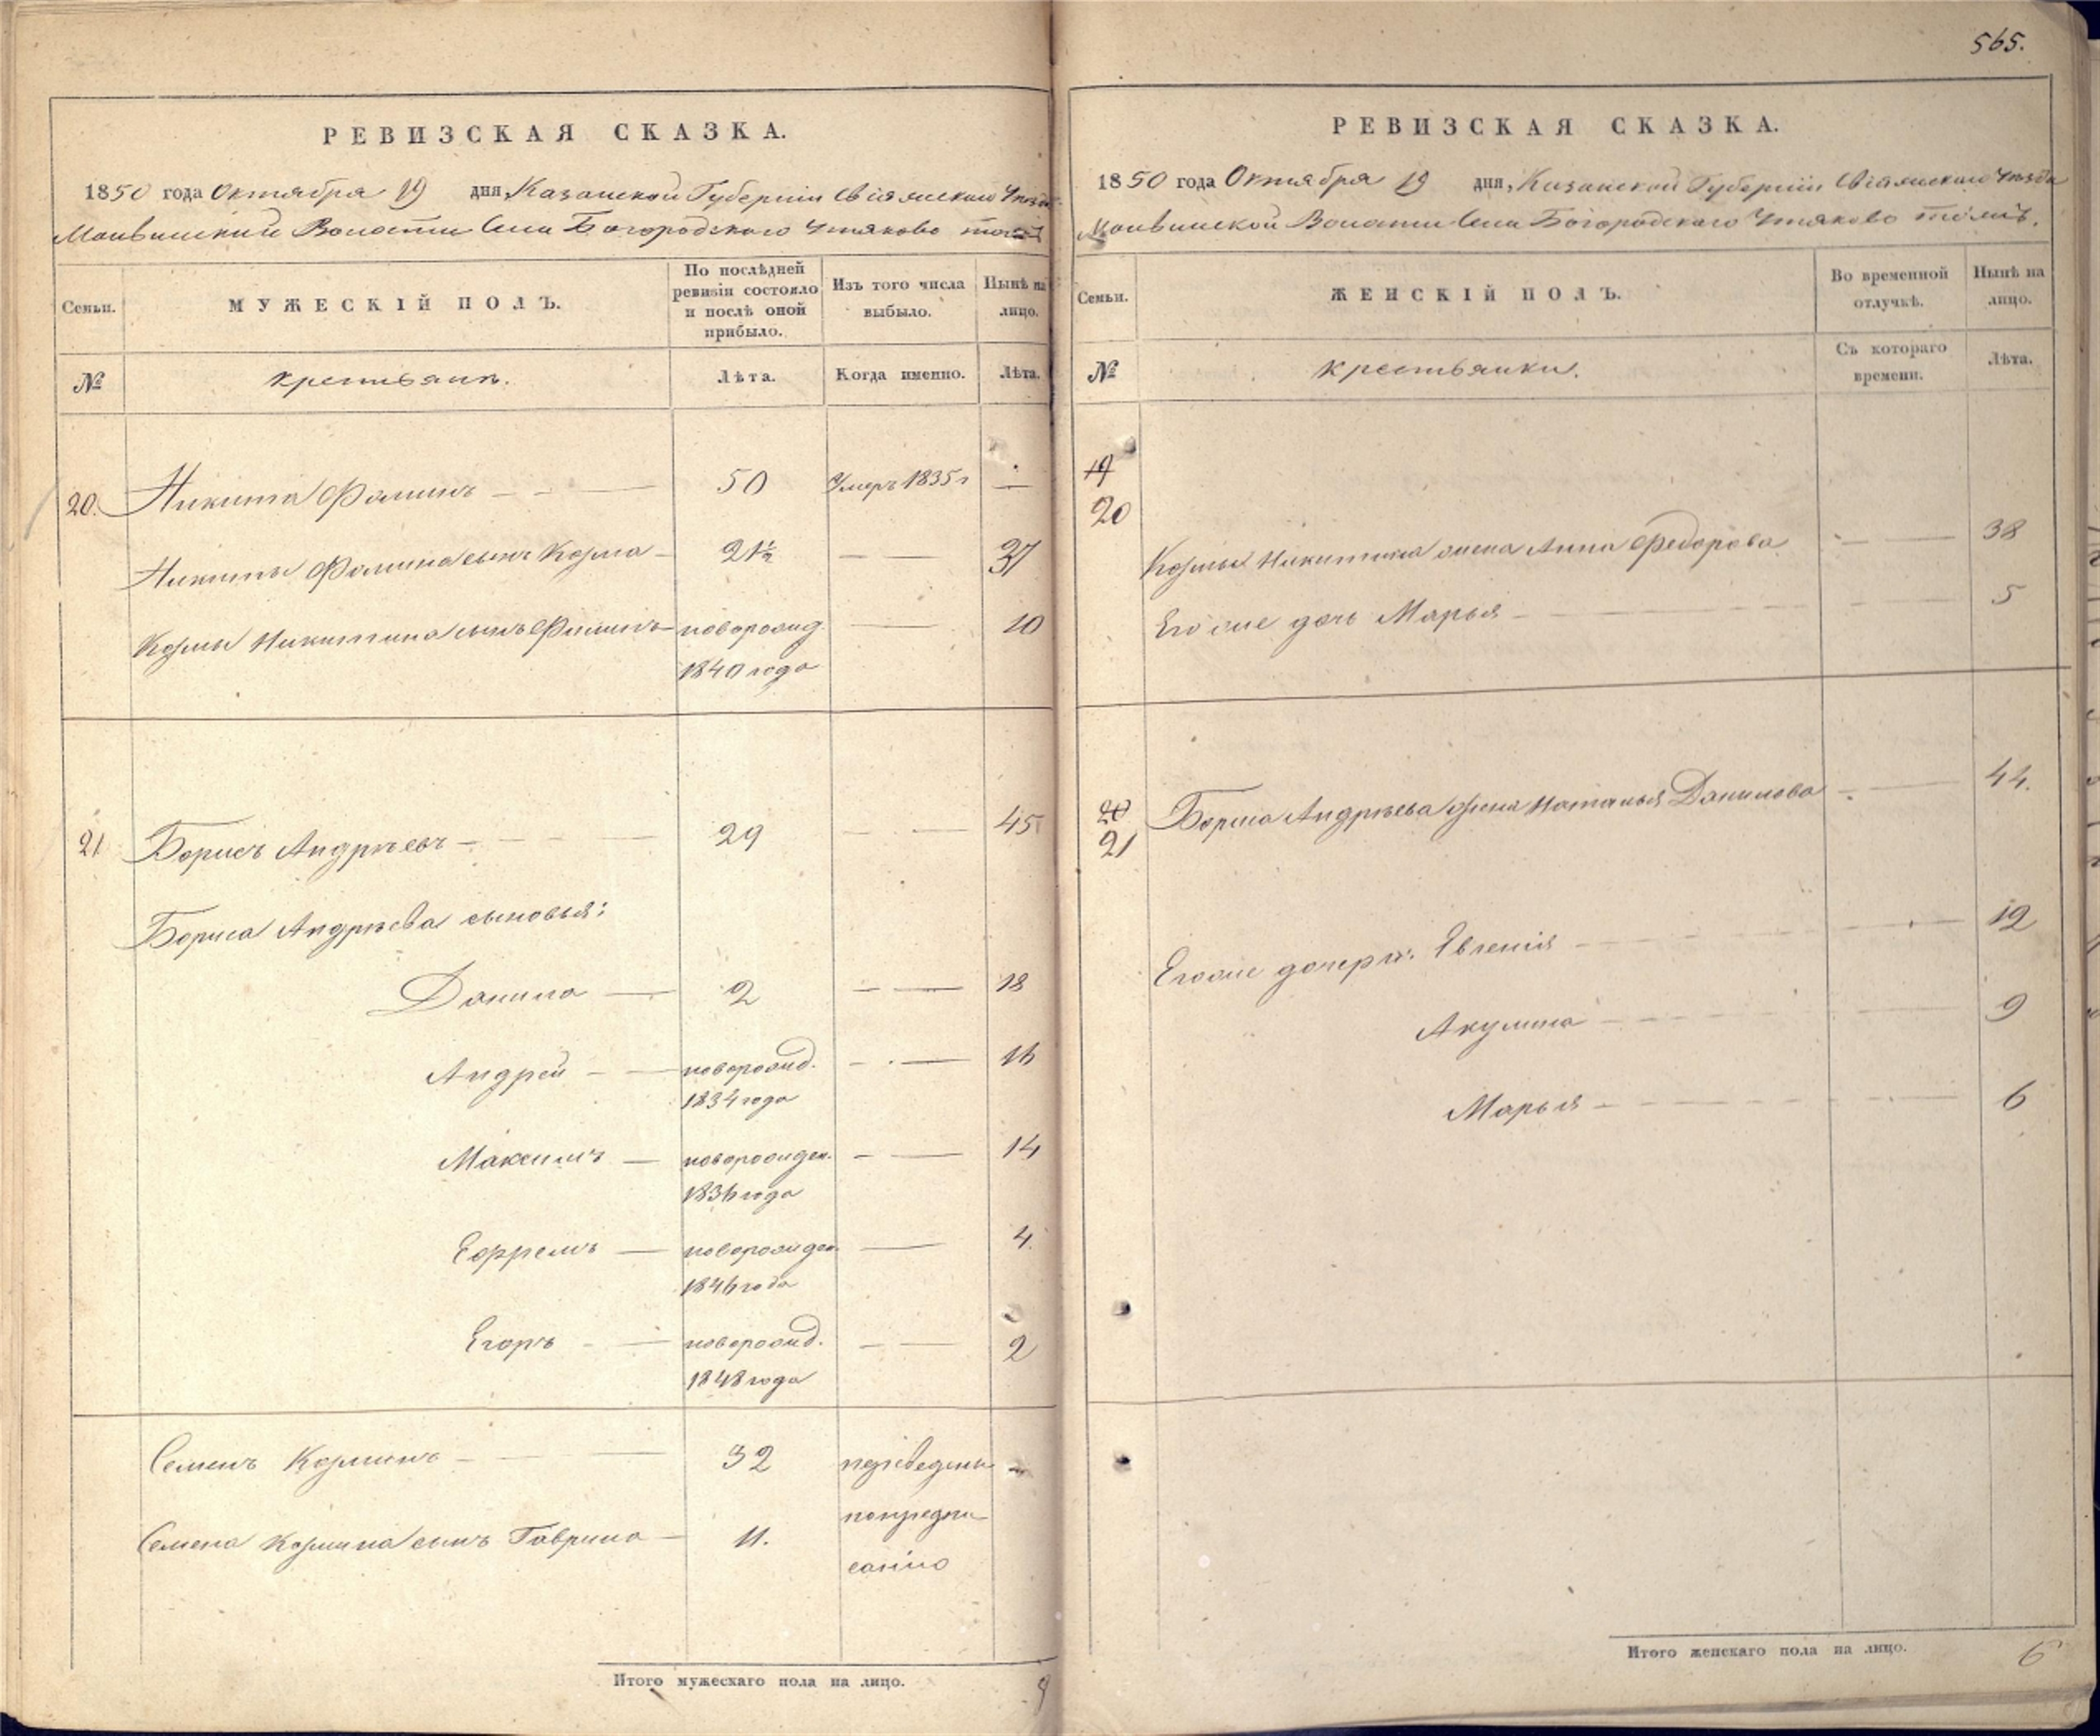 565.
РЕВИЗСКАЯ СКАЗКА.
1850 года Октября 19 дня, Казанской Губерніи Свіяжскаго Уѣзда
Волости Села Богородскаго Утяково тожъ
Семьи. МУЖЕСКІЙ ПОЛЪ. По послѣдней ревизіи состояло и послѣ оной прибыло. Изъ того числа выбыло. Нынѣ на лицо.
№ крестьянъ. Лѣта. Когда именно. Лѣта.
20. Никита Фоминъ 50 Умеръ 1835 г
Никиты Фомина сынъ Козма 21½ 37
Козмы Никитина сынъ новорожд. 10
1840 года
21 Борисъ Андрѣевъ 29 45
Бориса Андрѣева сыновья:
Данило 2 18
Андрей новорожд. 16
1834 года
Максимъ новорожден. 14
1836 года
Ефремъ новорожден. 4.
1846 года
Егоръ новорожд. 2
1848 года
Семенъ Козминъ 32 переведены
Семена Козмина сынъ Гаврила 11. по предпи-
санію
Итого мужескаго пола на лицо. 9
РЕВИЗСКАЯ СКАЗКА.
1850 года Октября 19 дня, Казанской Губерніи Свіяжскаго Уѣзда
Волости Села Богородскаго Утяково тожъ.
Семьи. ЖЕНСКІЙ ПОЛЪ. Во временной отлучкѣ. Нынѣ на лицо.
№ крестьянки. Съ котораго времени. Лѣта.
19
20
Козмы Никитина жена Анна Федорова 38
Его же дочь Марья 5
20
21 Бориса Андрѣева жена Наталья Данилова 44.
Его же дочери: Евгенія 12
Акулина 9
Марья 6
Итого женскаго пола на лицо. 6